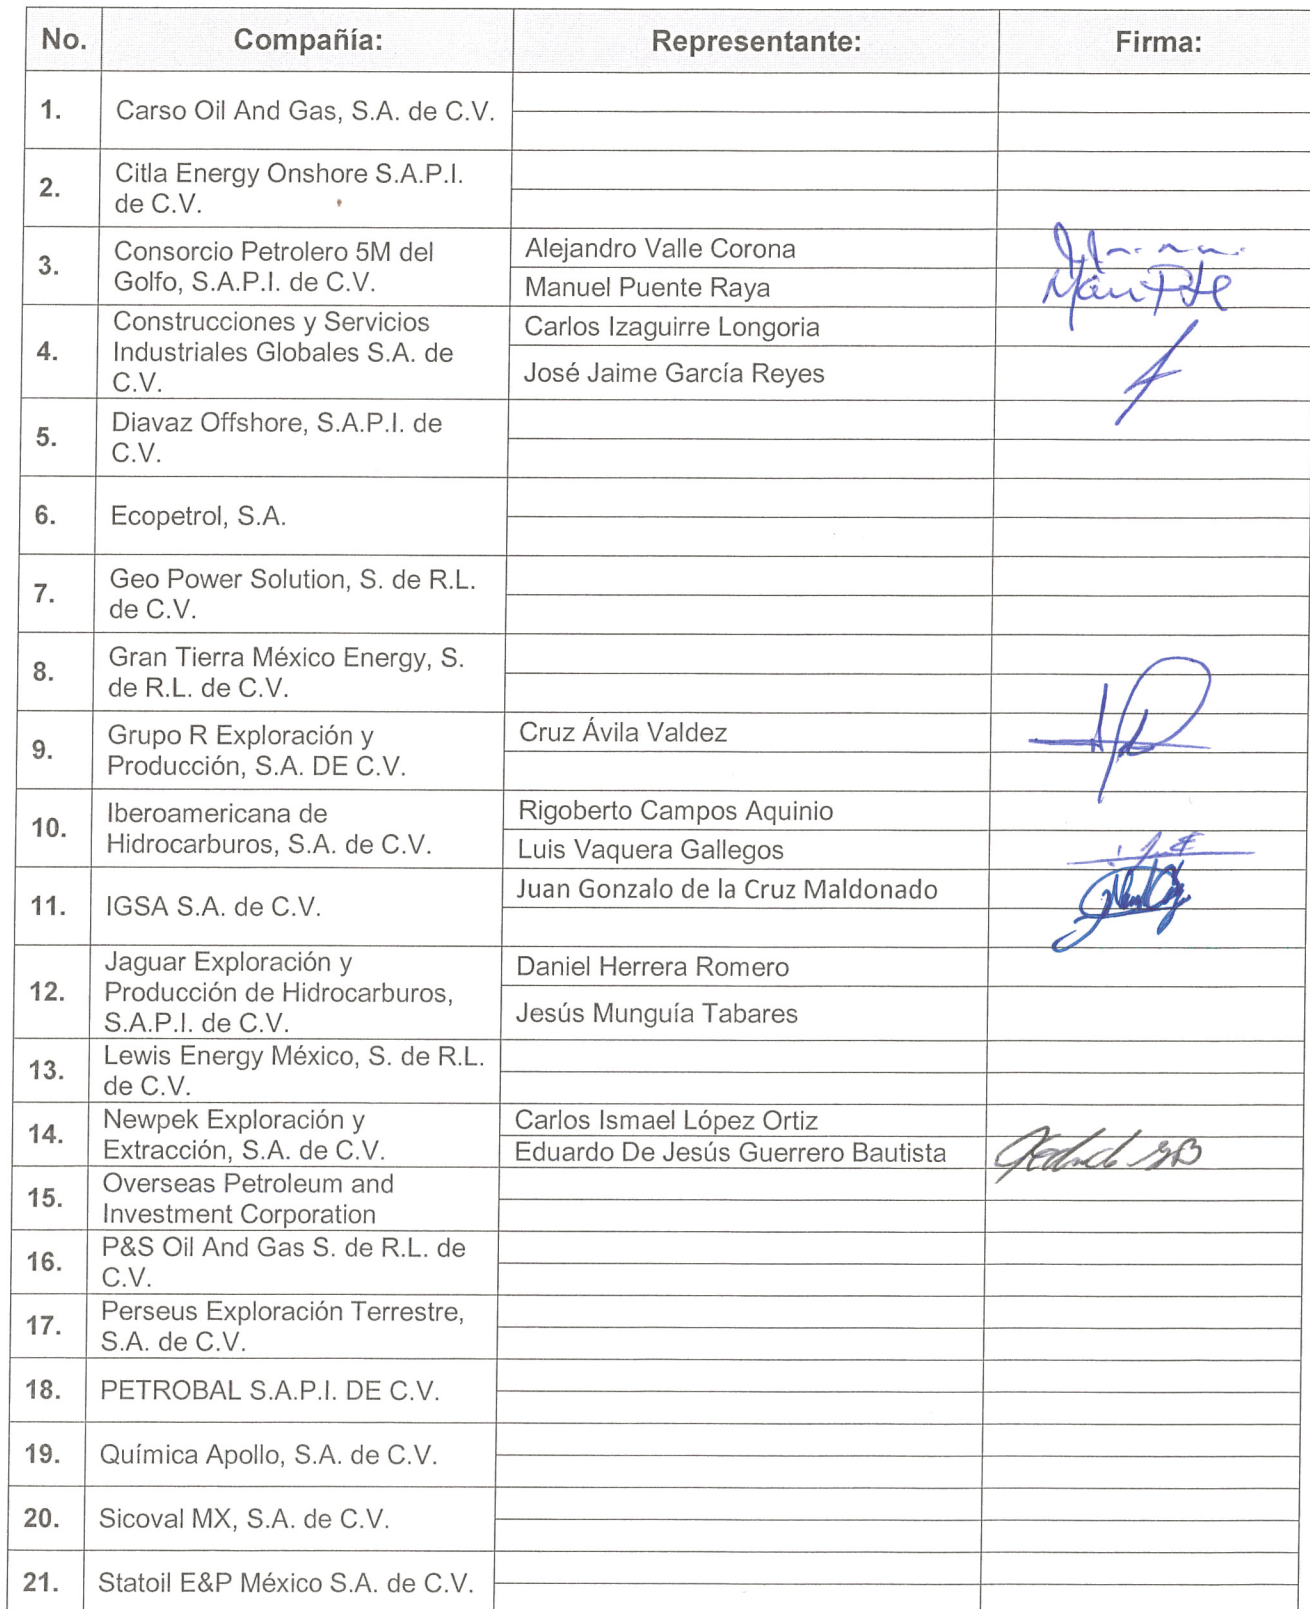 No. Compañía: Representante: Firma:
1. Carso Oil And Gas, S.A. de C.V.
2. Citla Energy Onshore S.A.P.I.
de C.V.
3. Consorcio Petrolero 5M del
Golfo, S.A.P.I. de C.V.
Alejandro Valle Corona
Manuel Puente Raya
4. Construcciones y Servicios
Industriales Globales S.A. de
C.V.
Carlos Izaguirre Longoria
José Jaime García Reyes
5. Diavaz Offshore, S.A.P.I. de
C.V.
6. Ecopetrol, S.A.
7. Geo Power Solution, S. de R.L.
de C.V.
8. Gran Tierra México Energy, S.
de R.L. de C.V.
9. Grupo R Exploración y
Producción, S.A. DE C.V.
Cruz Ávila Valdez
10. Iberoamericana de
Hidrocarburos, S.A. de C.V.
Rigoberto Campos Aquinio
Luis Vaquera Gallegos
11. IGSA S.A. de C.V.
Juan Gonzalo de la Cruz Maldonado
12. Jaguar Exploración y
Producción de Hidrocarburos,
S.A.P.I. de C.V.
Daniel Herrera Romero
Jesús Munguía Tabares
13. Lewis Energy México, S. de R.L.
de C.V.
14. Newpek Exploración y
Extracción, S.A. de C.V.
Carlos Ismael López Ortiz
Eduardo De Jesús Guerrero Bautista
15. Overseas Petroleum and
Investment Corporation
16. P&S Oil And Gas S. de R.L. de
C.V.
17. Perseus Exploración Terrestre,
S.A. de C.V.
18. PETROBAL S.A.P.I. DE C.V.
19. Química Apollo, S.A. de C.V.
20. Sicoval MX, S.A. de C.V.
21. Statoil E&P México S.A. de C.V.